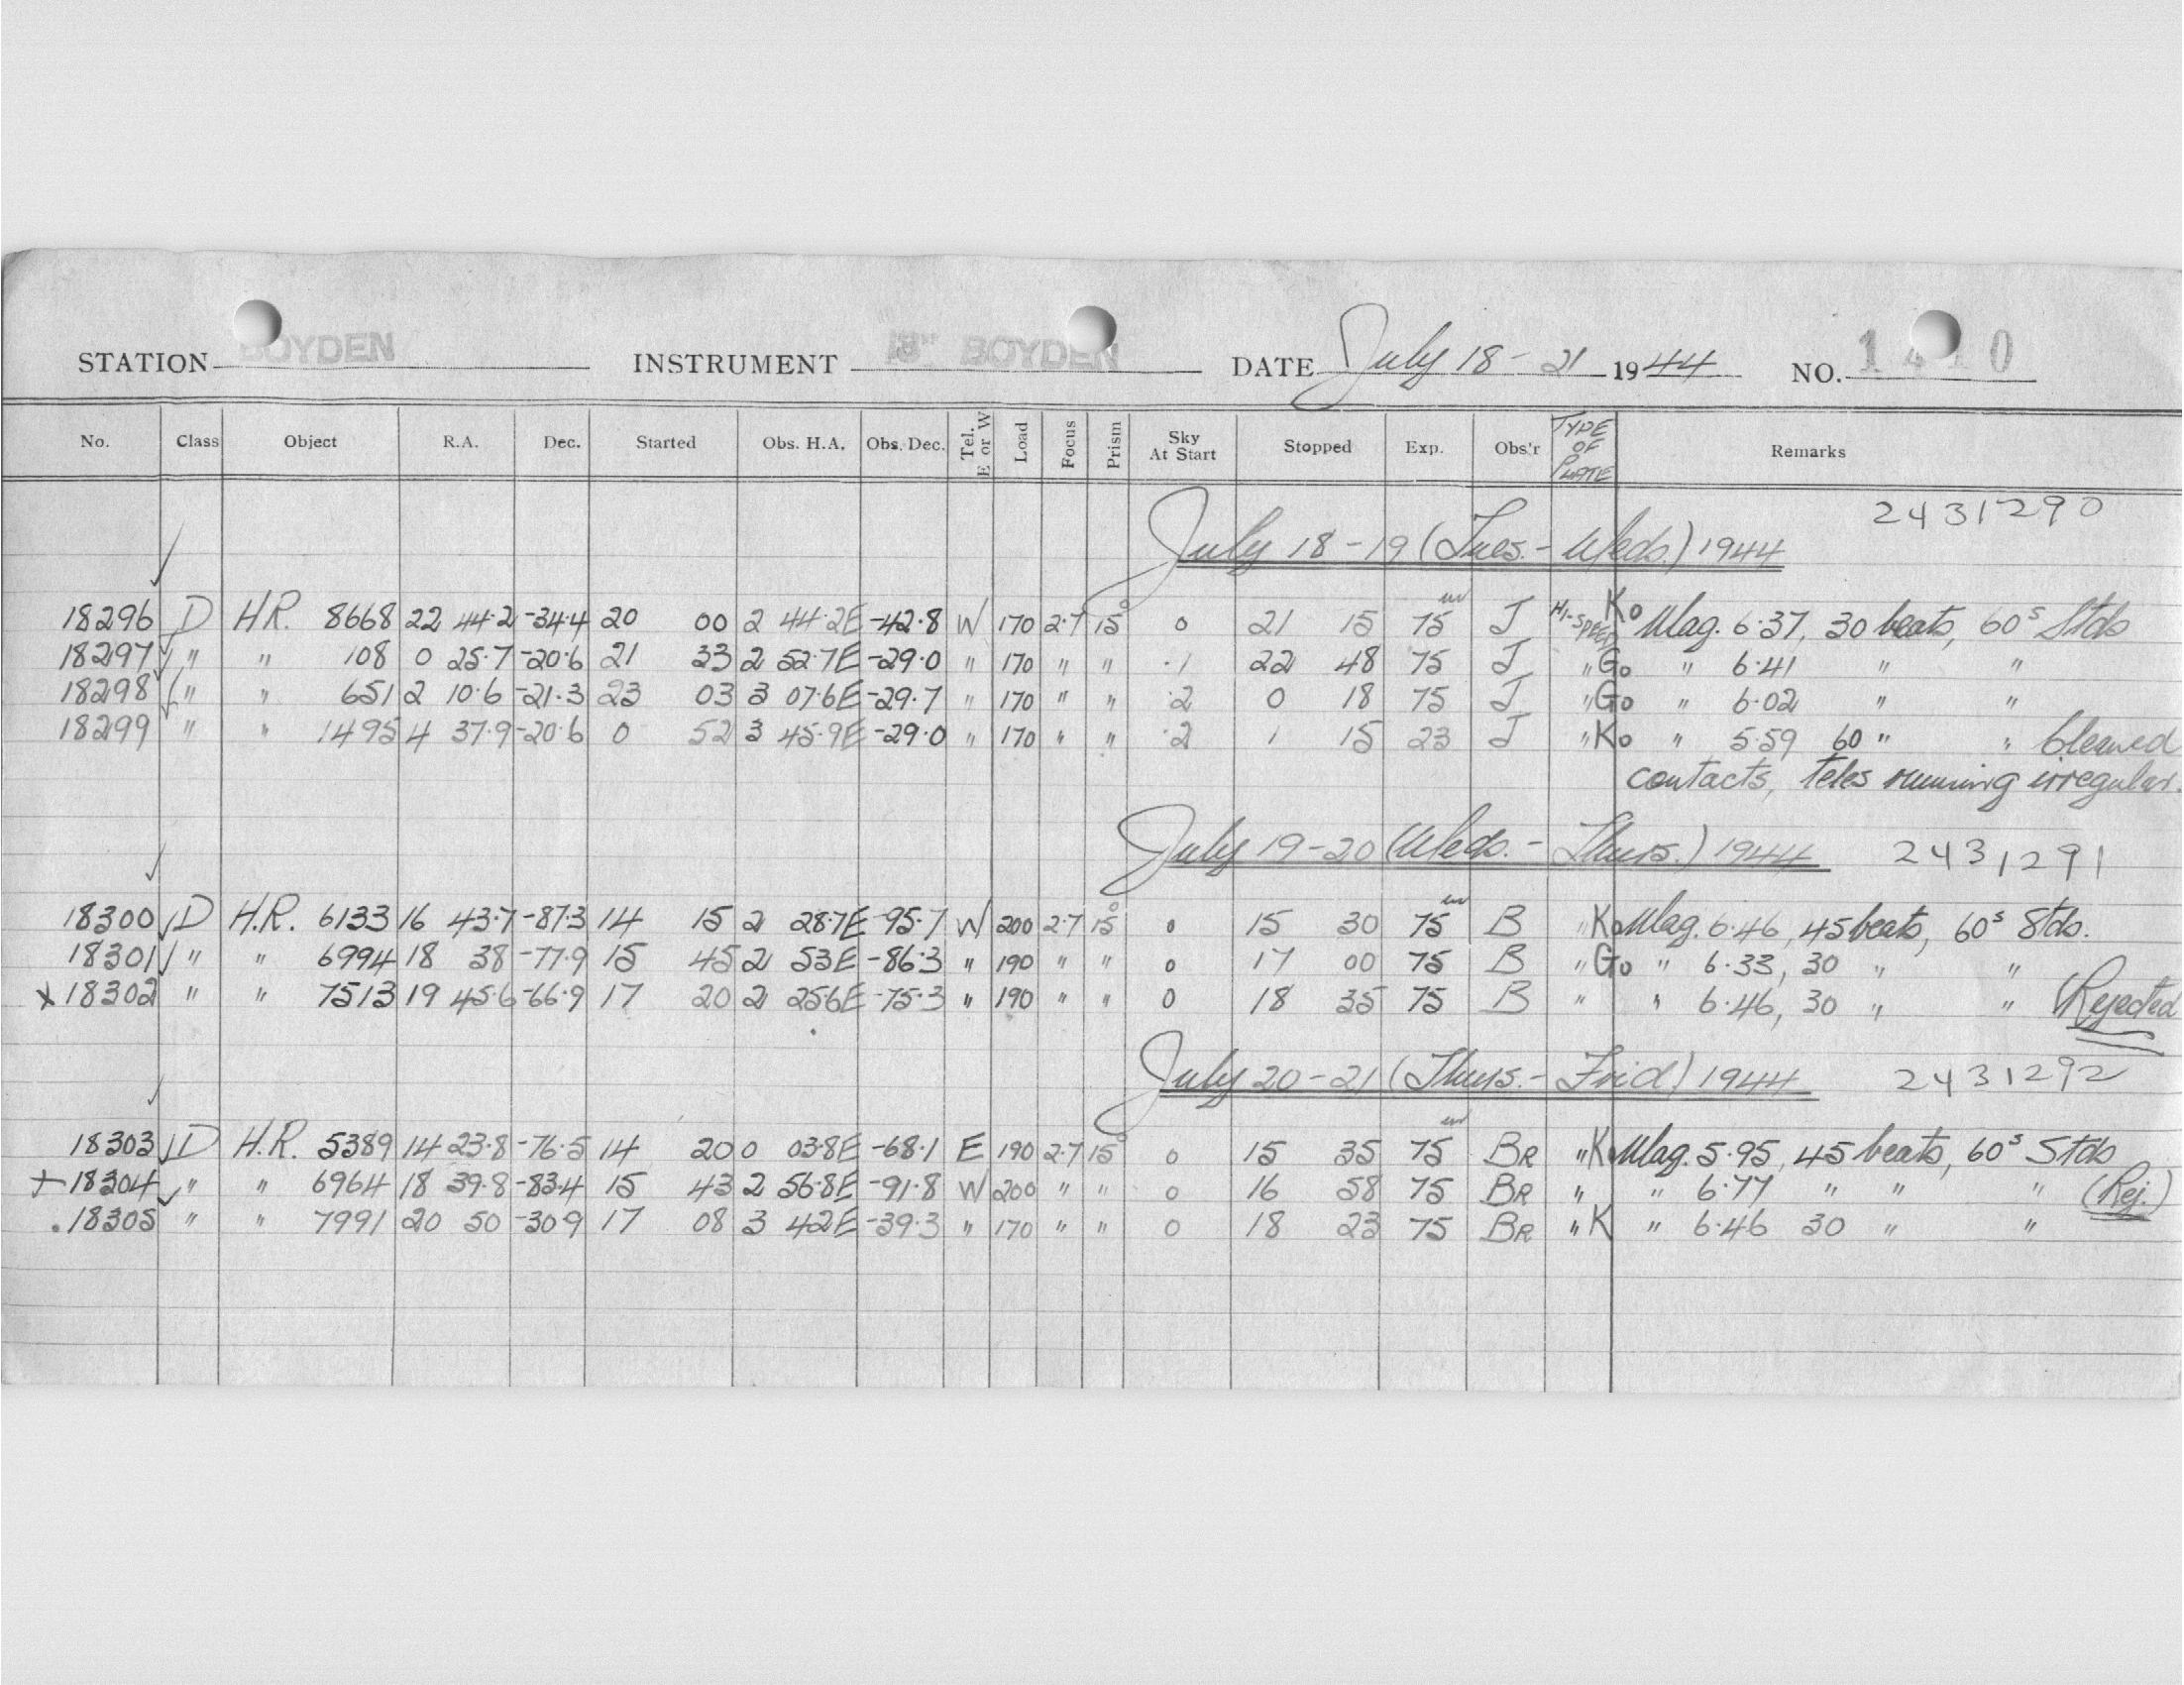 STATION BOYDEN INSTRUMENT 13" BOYDEN DATE July 18 - 21 1944 NO. 1410
No. Class Object R.A. Dec. Started Obs. H.A. Obs. Dec. Tel. E or W Load Focus Prism Sky At Start Stopped Exp. Obs'r TYPE OF PLATE Remarks
2431290
July 18-19 (Tues.-Weds.) 1944
18296 D H.R. 8668 22 44.2 -34.4 20 00 2 44.2E -42.8 W 170 2.7 15° 0 21 15 75m J HI-SPEED Ko Mag. 6.37, 30 beats, 60s Stds
18297 " " 108 0 25.7 -20.6 21 33 2 52.7E -29.0 " 170 " " .1 22 48 75 J " Go " 6.41 " "
18298 " " 651 2 10.6 -21.3 23 03 3 07.6E -29.7 " 170 " " .2 0 18 75 J " Go " 6.02 " "
18299 " " 1495 4 37.9 -20.6 0 52 3 45.9E -29.0 " 170 " " .2 1 15 23 J " Ko " 5.59 60 " " Cleaned
contacts, teles running irregular.
July 19-20 (Weds.-Thurs.) 1944 2431291
18300 D H.R. 6133 16 43.7 -87.3 14 15 2 28.7E -95.7 W 200 2.7 15° 0 15 30 75m B " Ko Mag. 6.46, 45 beats, 60s Stds.
18301 " " 6994 18 38 -77.9 15 45 2 53E -86.3 " 190 " " 0 17 00 75 B " Go " 6.33, 30 " "
x 18302 " " 7513 19 45.6 -66.9 17 20 2 25.6E -75.3 " 190 " " 0 18 35 75 B " " 6.46, 30 " " Rejected
July 20-21 (Thurs.-Frid) 1944 2431292
18303 D H.R. 5389 14 23.8 -76.5 14 20 0 03.8E -68.1 E 190 2.7 15° 0 15 35 75m BR " K Mag. 5.95, 45 beats, 60s Stds
+ 18304 " " 6964 18 39.8 -83.4 15 43 2 56.8E -91.8 W 200 " " 0 16 58 75 BR " " 6.77 " " " (Rej.)
.18305 " " 7991 20 50 -30.9 17 08 3 42E -39.3 " 170 " " 0 18 23 75 BR " K " 6.46 30 " "